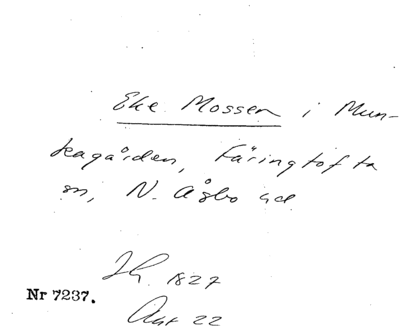 Eke Mossen i Mun-
kagården, Färingtofta
sn, N. Åsbo hd
1827
Nr 7237.
Akt 22